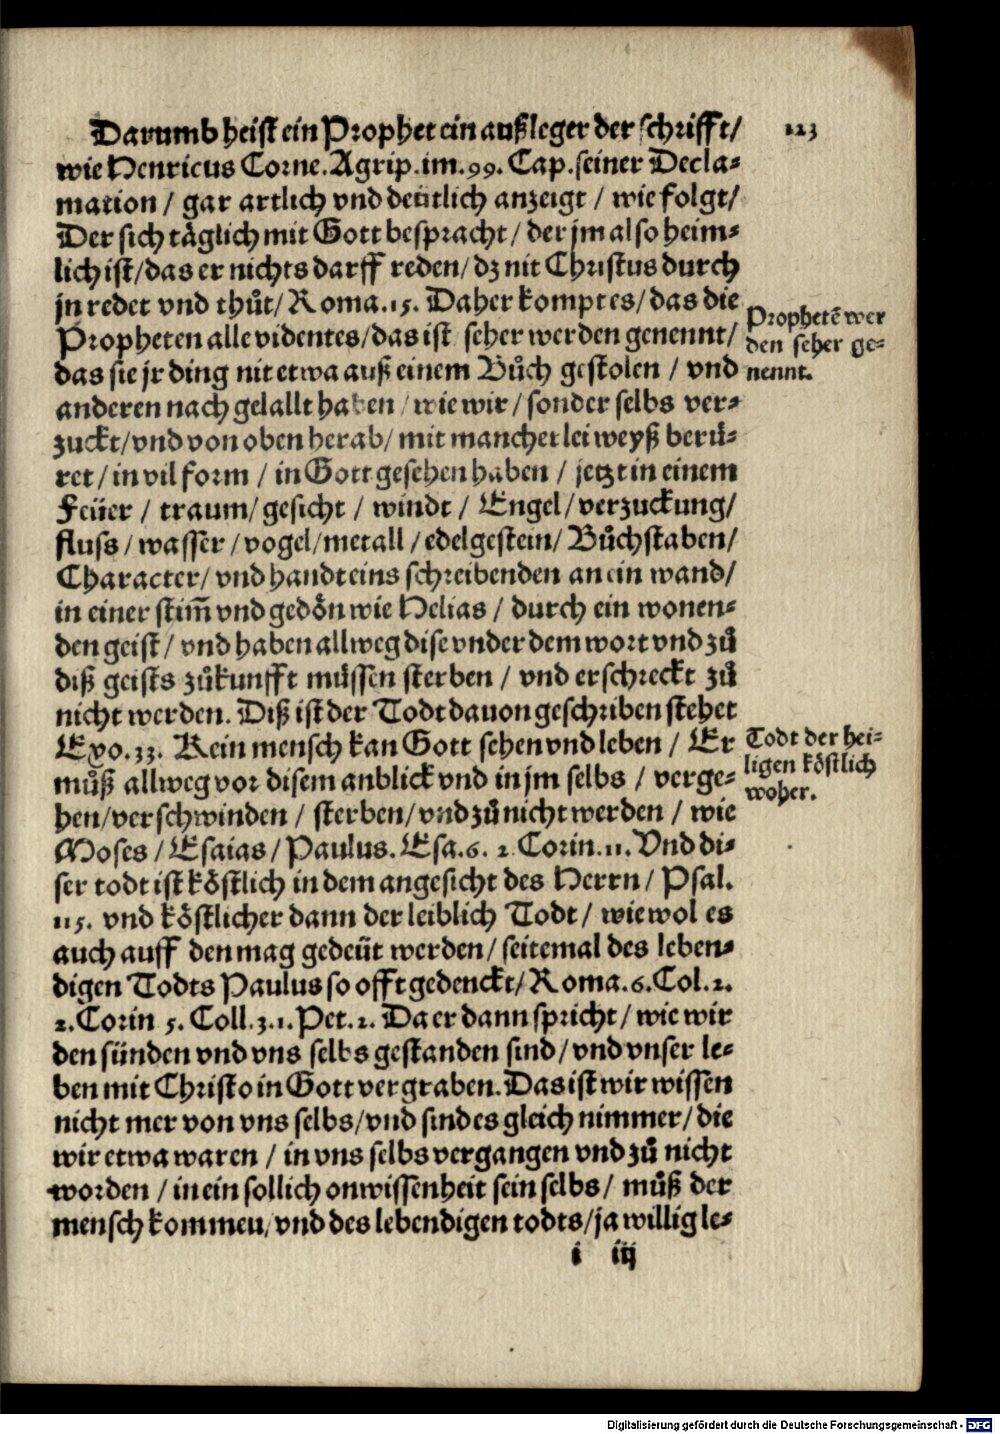 Darumb heist ein Prophet ein außleger der schrifft/
123
wie Henricus Corne. Agrip. im. 99. Cap. seiner Decla-
mation / gar artlich vnd deütlich anzeigt / wie folgt/
Der sich täglich mit Gott bespracht / der jm also heim-
lich ist/das er nichts darff reden/ dz nit Christus durch
jn redet vnd thůt/ Roma. 15. Daher kompt es/ das die
Propheten alle videntes/das ist seher werden genennt/
das sie jr ding nit etwa auß einem Bůch gestolen / vnd
anderen nach gelallt haben / wie wir / sonder selbs ver-
zuckt/vnd von oben herab/ mit mancherlei weyß berü-
ret / in vil form / in Gott gesehen haben / jetzt in einem
Feüer / traum/ gesicht / windt / Engel/verzuckung/
fluss / wasser / vogel/metall / edelgestein/ Bůchstaben/
Character/ vnd handt eins schreibenden an ein wand/
in einer stim̃ vnd gedön wie Helias / durch ein wonen-
den geist / vnd haben allweg dise vnder dem wort vnd zů
diß geists zůkunfft müssen sterben / vnd erschreckt zů
nicht werden. Diß ist der Todt dauon geschriben stehet
Exo. 33. Kein mensch kan Gott sehen vnd leben / Er
můß allweg vor disem anblick vnd in jm selbs / verge-
hen/verschwinden / sterben/vnd zů nicht werden / wie
Moses / Esaias / Paulus. Esa. 6. 2 Corin. 11. Vnd di-
ser todt ist köstlich in dem angesicht des Herrn/ Psal.
115. vnd köstlicher dann der leiblich Todt / wie wol es
auch auff den mag gedeüt werden/ seitemal des leben-
digen Todts Paulus so offt gedenckt/ Roma. 6. Col. 2.
2. Corin 5. Coll. 3. 1. Pet. 2. Da er dann spricht / wie wir
den sünden vnd vns selbs gestanden sind / vnd vnser le-
ben mit Christo in Gott vergraben. Das ist wir wissen
nicht mer von vns selbs/vnd sind es gleich nimmer/ die
wir etwa waren / in vns selbs vergangen vnd zů nicht
worden / in ein sollich onwissenheit sein selbs/ můß der
mensch kommen/ vnd des lebendigen todts/ja willig le-
i iij
Prophetẽ wer
den seher ge-
nennt.
Todt der hei-
ligen köstlich
woher.
Digitalisierung gefördert durch die Deutsche Forschungsgemeinschaft - DFG